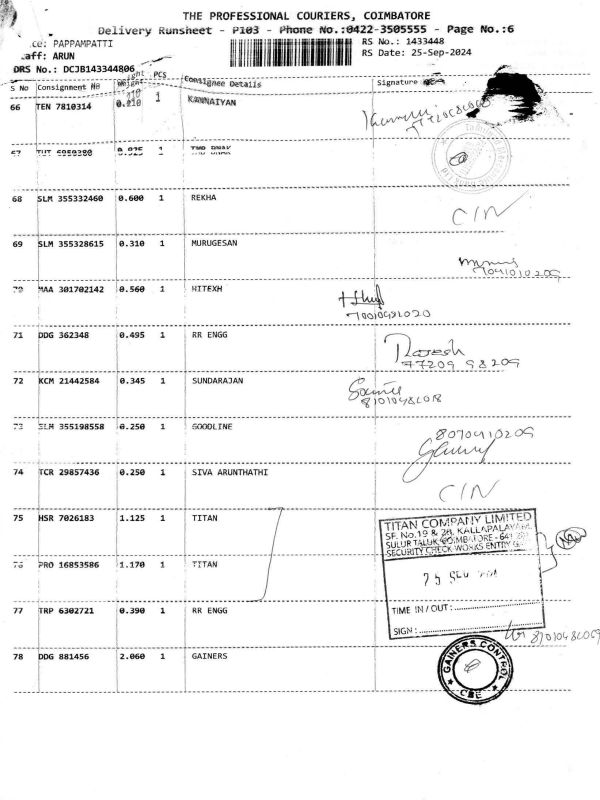 THE PROFESSIONAL COURIERS, COIMBATORE
Delivery Runsheet - P103 - Phone No.:0422-3505555 - Page No.:6
ce: PAPPAMPATTI
RS No.: 1433448
aff: ARUN
RS Date: 25-Sep-2024
DRS No.: DCJB143344806
S No Consignment NO Weight PCS Consignee Details Signature
66 TEN 7810314 0.210 1 KANNAIYAN
67 TUT 6959380 0.925 1 TMB BNAK
68 SLM 355332460 0.600 1 REKHA
CIN
69 SLM 355328615 0.310 1 MURUGESAN
7041010209
70 MAA 301702142 0.560 1 HITEXH
70010481020
71 DDG 362348 0.495 1 RR ENGG
97209 98209
72 KCM 21442584 0.345 1 SUNDARAJAN
73 SLM 355198558 0.250 1 GOODLINE
8070410209
74 TCR 29857436 0.250 1 SIVA ARUNTHATHI
CIN
75 HSR 7026183 1.125 1 TITAN
TITAN COMPANY LIMITED
SF. No.19 & 20, KALLAPALAYAM,
SULUR TALUK COIMBATORE - 641
SECURITY CHECK WORKS ENTRY
76 PRO 16853586 1.170 1 TITAN
TIME IN / OUT :
77 TRP 6302721 0.390 1 RR ENGG
SIGN :
78 DDG 881456 2.060 1 GAINERS
GAINERS CONTROL
CBE